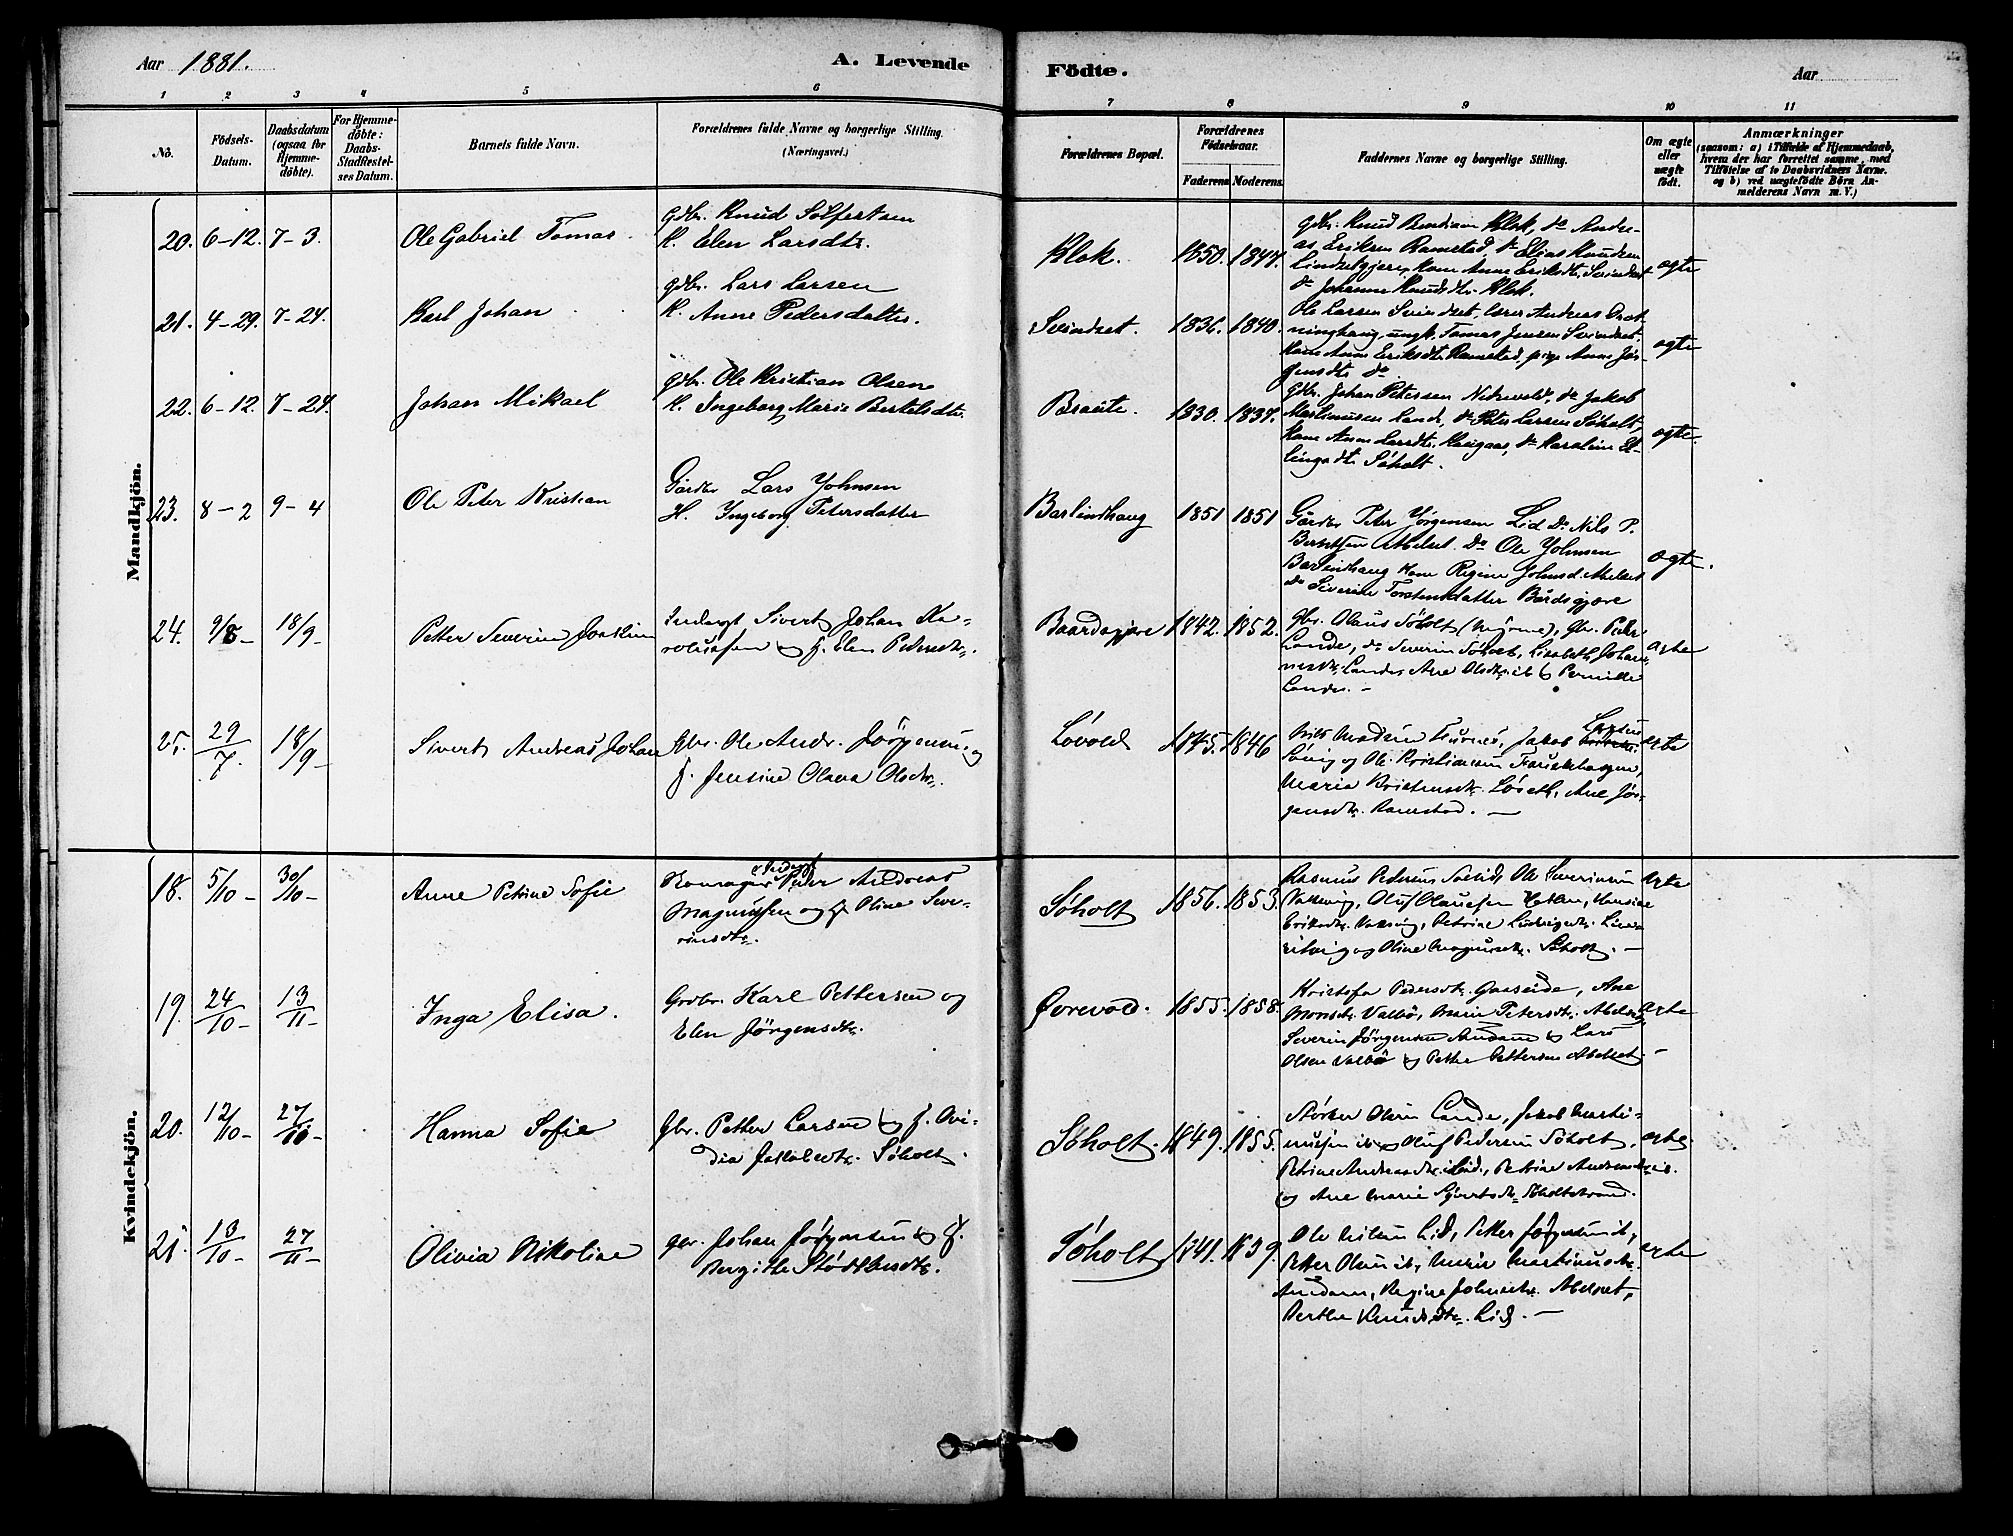 Aar 1881.
A. Levende
Födte.
Aar
1 2 3 4 5 6 7 8 9 10 11
No.
Födsels-
Datum.
Daabsdatum
(ogsaa for
Hjemme-
döbte).
For Hjemme-
döbte:
Daabs-
Stadfæstel-
ses Datum.
Barnets fulde Navn.
Forældrenes fulde Navne og borgerlige Stilling.
(Næringsvei.)
Forældrenes Bopæl.
Forældrenes
Födselsaar.
Faderens Moderens.
Faddernes Navne og borgerlige Stilling.
Om ægte
eller
uægte
födt.
Anmærkninger
(saasom: a) i Tilfælde af Hjemmedaab,
hvem der har forrettet samme, med
Tilföielse af to Daabsvidners Navne.
og b) ved uægtefödte Börn An-
melderens Navn m. V.)
Mandkjön.
20. 6-12. 7-3.
Ole Gabriel Tomas
gdbr. Knud Solfestsen
K. Elen Larsdtr.
Klok.
1850. 1847.
gdbr. Knud Bendixen Klok, do Andre-
as Eriksen Ramstad, do Elias Knudsen
Lindsetgjere, Kone Anne Eriksdtr. Svindset
do Johanne Knudsdtr. Klok.
ægte
21. 4-29. 7-24.
Karl Johan
gdbr. Lars Larsen
K. Anne Pedersdatter.
Svindset.
1836. 1840.
Ole Larsen Svindset, Andreas
ungk. Tomas Jensen Svindset,
Kone Anne Eriksdtr. Ramstad, pige Anne Jør-
gensdtr. do
ægte
22. 6-12. 7-24.
Johan Mikael
gdbr. Ole Kristian Olsen
K. Ingeborg Marie Bertelsdtr.
Braute.
1830. 1837.
gdbr. Johan Petersen Nedrevold, do Jakob
Martinusen Lande, do Peter Larsen Søholt,
Kone Anne Larsdtr. Haugaas, do Karoline El-
lingsdtr. Søholt.
ægte.
23. 8-2 9-4
Ole Peter Kristian
Gårdbr Lars Johnsen
H. Ingeborg Petersdatter
Barlindhaug
1851 1851
Gårdbr Peter Jørgensen Lid Do Nils P.
Berntsen Abelset. Do Ole Johnsen
Barlindhaug Kone Regine Johnsd. Abelset
do Severine Torstensdatter Bårdsgjære
ægte.
24. 9/8- 18/9-
Petter Severin Joakim
Inderst Sivert Johan Ka-
rolusen og h. Elen Pedersdtr.
Baardsgjære
1842. 1852.
gbr. Olaus Søholt, gbr. Peder
Lande, do Severin Søholt, Lisabeth Johan-
nesdtr. Lande, Ane Olsdtr. ib og Pernille
Lande.-
ægte
25. 29/7. 18/9-
Sivert Andreas Johan
Gbr. Ole Andr. Jörgensen og
h. Jensine Olava Olsdtr.
Løvold
1845. 1846
Nils Madsen, Jakob
og Ole Kristiansen
Marie Kristensdtr. Løseth, Ane Jör-
gensdtr. Ramstad. -
ægte
Kvindekjön.
18. 5/10- 30/10-
Anne Petrine Sofie
Inderst
Peder Andreas
Magnussen og h. Oline Seve-
rinsdtr.
Søholt
1856. 1853.
Rasmus Pedersen, Ole Severinsen
Oluf Olausen, Hansine
Eriksdtr., Petrine Ludvigsdtr.
og Oline Magnusdtr. Søholt. -
ægte
19. 24/10- 13/11-
Inga Elisa.
Grdbr. Karl Pettersen og
Elen Jörgensdtr.
Øvrevold.
1855. 1858.
Kristofa Pedersdtr. Gaaseide, Ane
Monsdtr. Valbö, Marie Petersdtr. Abelset,
Severin Jörgensen Amdam og Lars
Olsen Valbö og Petter Pettersen Abelset. -
ægte
20. 12/10- 27/10-
Hanna Sofie
Gbr. Petter Larsen og h. Ovi-
dia Jakobsdtr. Søholt.
Søholt.
1849. 1855.
Størker Olsen Lande, Jakob Marti-
nussen ib og Oluf Pedersen Søholt,
Petrine Andreasdtr. Lid, Petrine
og Ane Marie Sjvertsdtr. Søholtstrand.
ægte
21. 13/10- 27/11-
Olivia Nikoline
gbr. Johan Jörgensen og h.
Bergithe
Søholt
1841. 1839.
Ole Nilsen Lid, Petter Jörgensen ib,
Petter Olsen ib, Marie Martinusdtr.
Amdam, Regine Johnsdtr. Abelset,
Berthe Knudsdtr. Lid. -
ægte